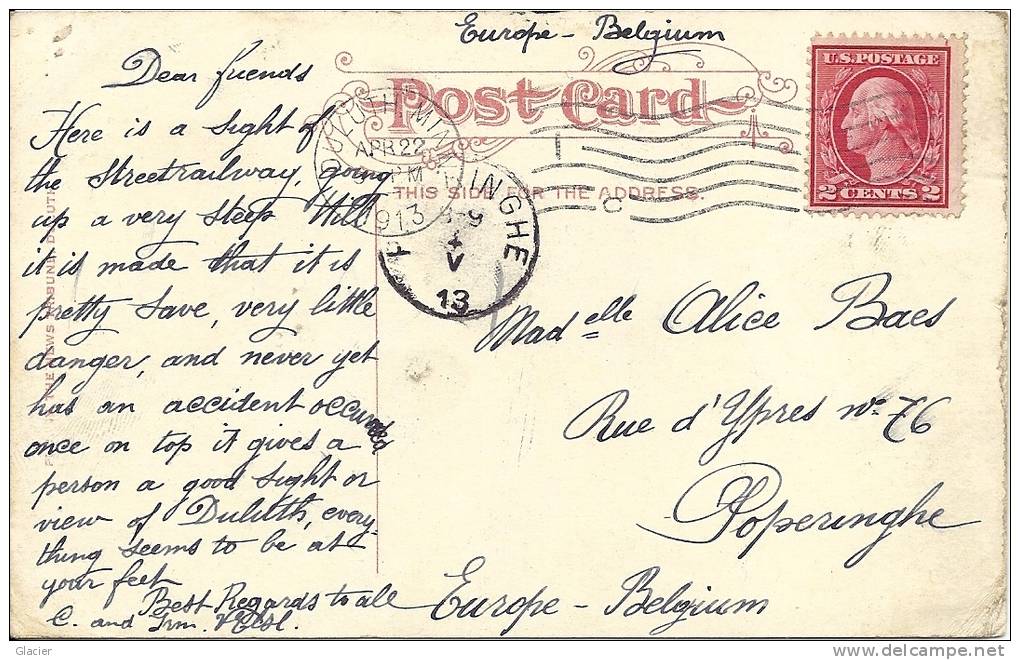 Europe - Belgium
Dear friends
Here is a sight of
the Streetrailway, going
up a very steep Hill
it is made that it is
pretty save, very little
danger, and never yet
has an accident occurded
once on top it gives a
person a good sight or
view of Duluth, every-
thing seems to be at
your feet
Best Regards to all
C. and
Post Card
THIS SIDE FOR THE ADDRESS.
DULUTH MIN
APR 22
PM
1913
INGHE
8-9
4
V
13
U.S. POSTAGE
2 CENTS 2
Madelle Alice Baes
Rue d'Ypres No 76
Poperinghe
Europe - Belgium
Glacier
delcampe.net